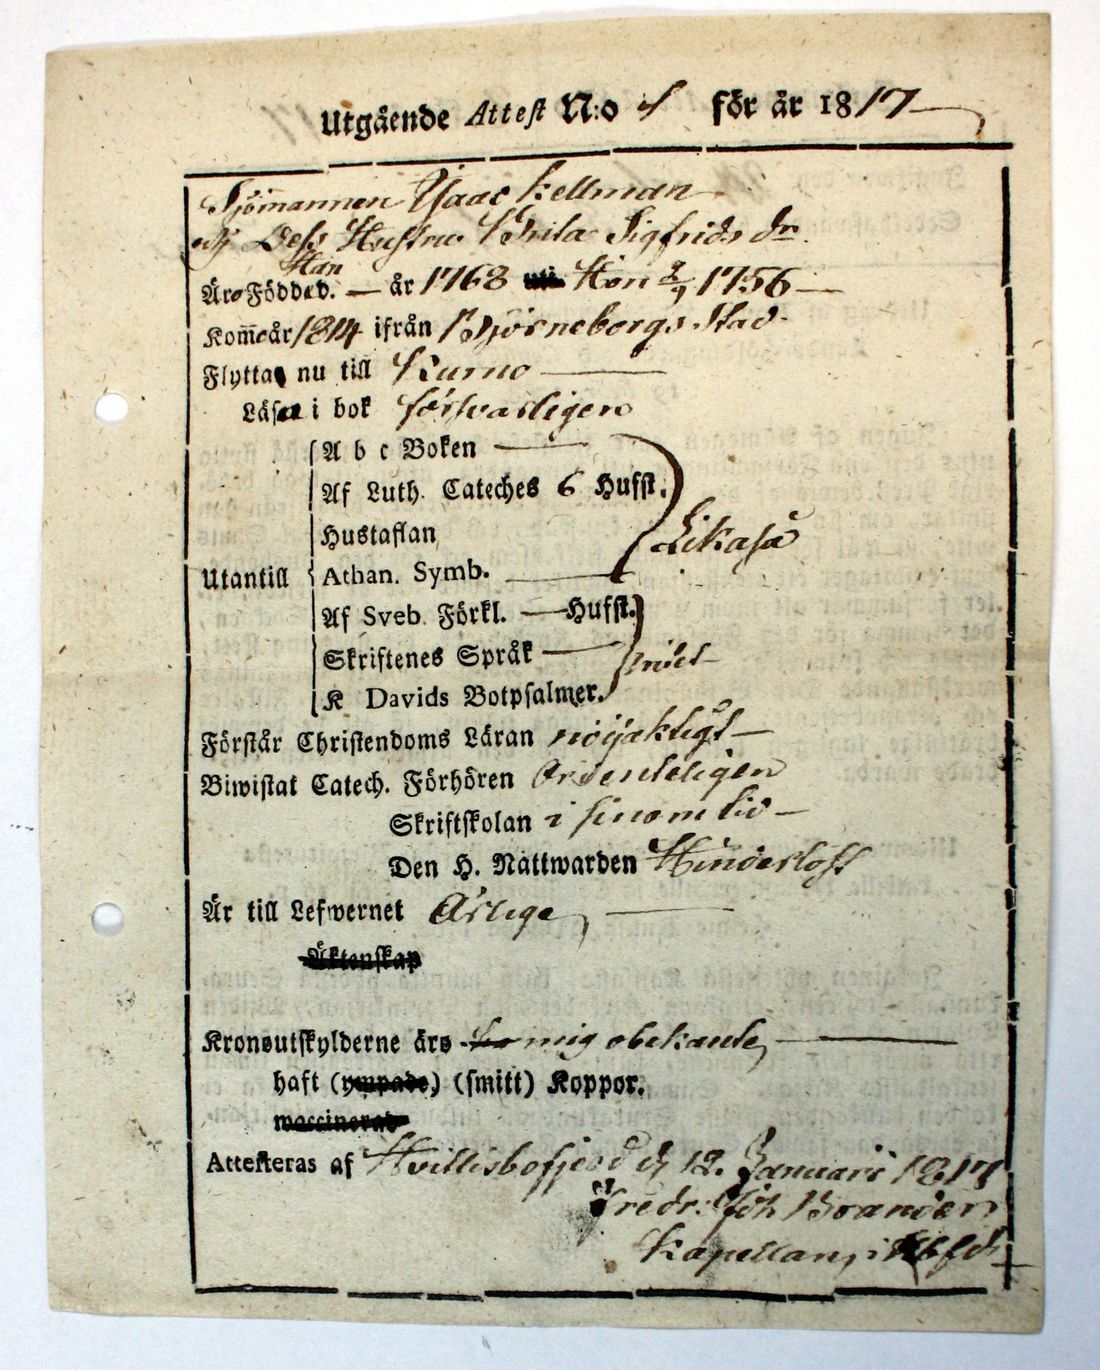 Utgående Attest N:o 4 för år 1817
Sjömannen Isaac Kellman
och Dess Hustru Brita Sigfrids dr.
Han
Äro Födde d. — år 1768 Hon 1756 —
Komme år 1814 ifrån Björneborgs Stad
Flytta nu till Kumo
Läsa i bok försvarligen
A b c Boken
Af Luth. Cateches 6 Hufst.
Hustaflan
Likaså
Utantill Athan. Symb.
Af Sveb. Förkl. — Hufst.
Skriftenes Språk — intet
K Davids Botpsalmer.
Förstår Christendoms Läran nöijaktigt —
Biwistat Catech. Förhören Ordenteligen
Skriftskolan i sinom tid —
Den H. Nattwarden Hinderlöst
Är till Lefwernet Ärlige,
Äktenskap
Kronoutskylderne äro mig obekante,
haft (ympade) (smitt) Koppor.
waccinerad
Attesteras af Hvittisbofjerd d. 12. Januarii 1817
Fredr. Joh Brander
Kapellan, i